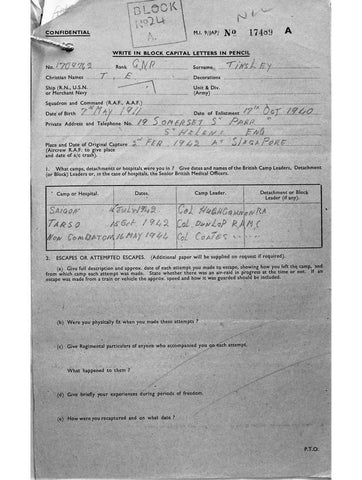 BLOCK
No24
A.
CONFIDENTIAL
M.I. 9/JAP/ No 17469 A
WRITE IN BLOCK CAPITAL LETTERS IN PENCIL
No. 1709762 Rank GNR Surname TINSLEY
Christian Names T. E. Decorations
Ship (R.N., U.S.N. or Merchant Navy) Unit & Div. (Army)
Squadron and Command (R.A.F., A.A.F.)
Date of Birth 7th MAY 1911 Date of Enlistment 17th OCT 1940
Private Address and Telephone No. 19 SOMERSET ST PARR
ST HELENS ENG
Place and Date of Original Capture FEB 1942 AT SINGAPORE
(Aircrew R.A.F. to give place and date of a/c crash).
1. What camps, detachments or hospitals were you in? Give dates and names of the British Camp Leaders, Detachment (or Block) Leaders or, in the case of hospitals, the Senior British Medical Officers.
Camp or Hospital. Dates. Camp Leader. Detachment or Block Leader (if any).
SAIGON JULY 1942 COL HUGHGANNON RA
TARSO OCT 1942 COL DUNLOP RAMC
NON 16 MAY 1944 COL COATES
2. ESCAPES OR ATTEMPTED ESCAPES. (Additional paper will be supplied on request if required).
(a) Give full description and approx. date of each attempt you made to escape, showing how you left the camp, and from which camp each attempt was made. State whether there was an air-raid in progress at the time or not. If an escape was made from a train or vehicle the approx. speed and how it was guarded should be included.
(b) Were you physically fit when you made these attempts ?
(c) Give Regimental particulars of anyone who accompanied you on each attempt.
What happened to them ?
(d) Give briefly your experiences during periods of freedom.
(e) How were you recaptured and on what date ?
P.T.O.